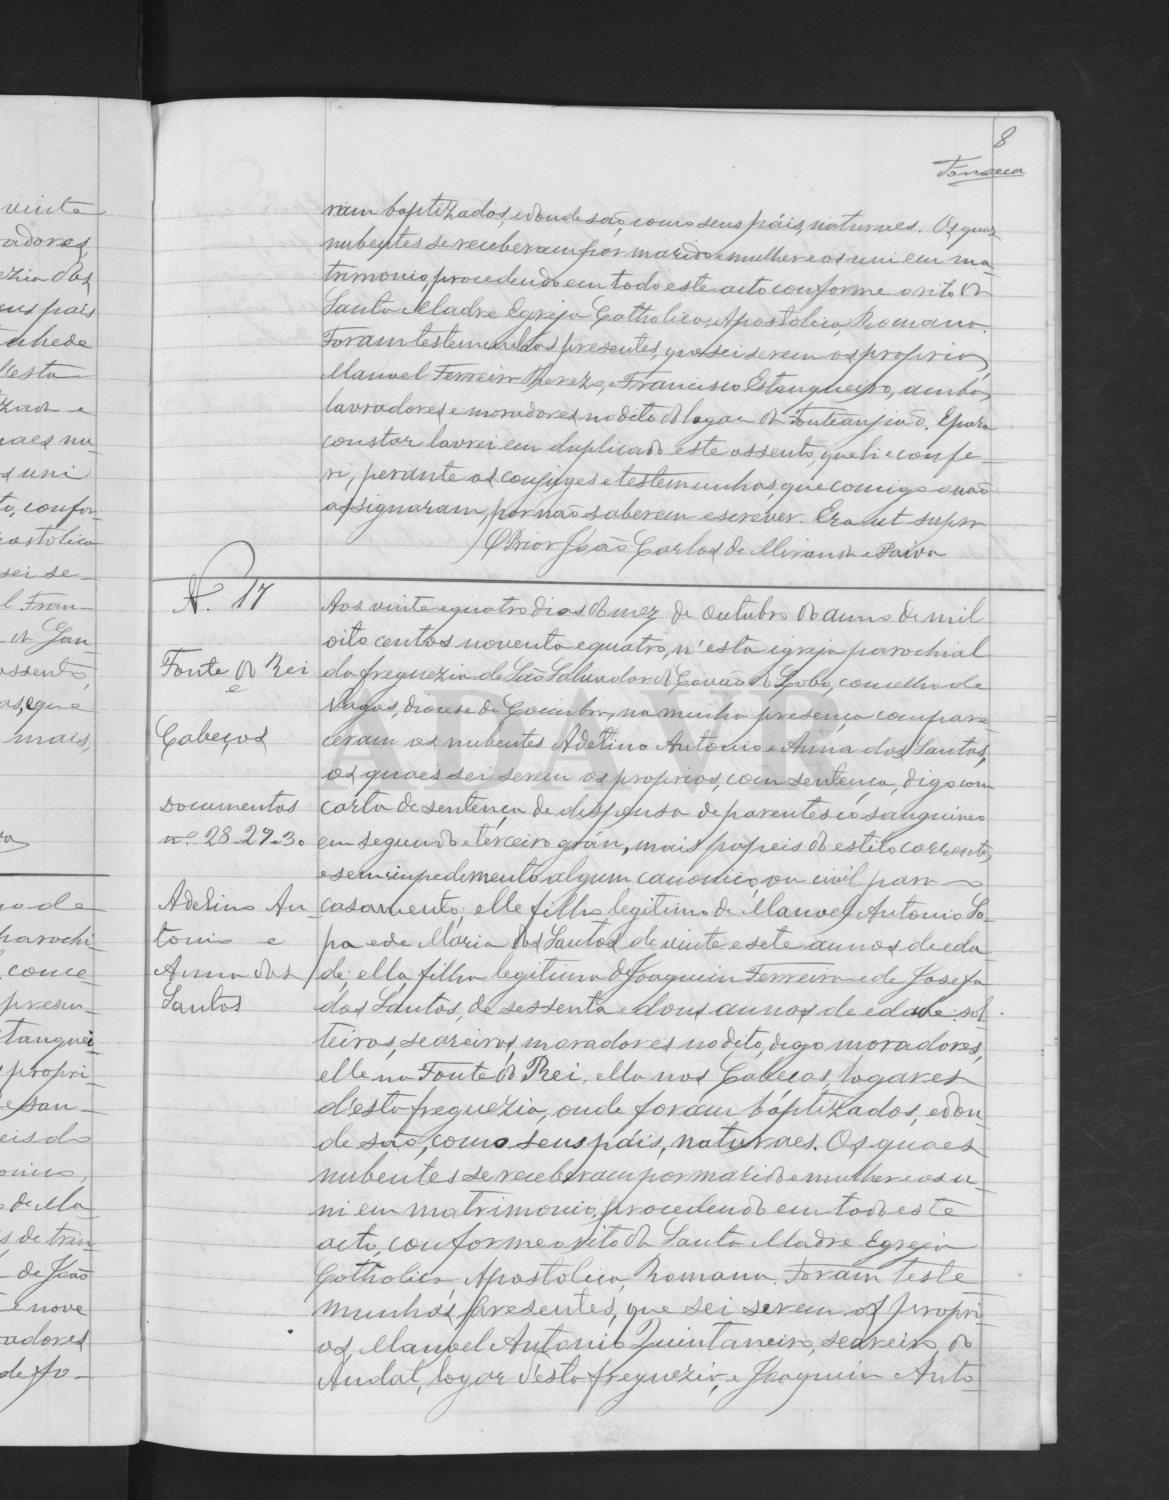 8
Fonseca
ram baptizados, e donde são, como seus páis, naturaes. Os quaes
nubentes se receberam por marido e mulher e os uni em ma-
trimonio, procedendo em todo este acto conforme o rito da
Santa Madre Egreja Catholica, Apostolica, Romana.
Foram testemunhas presentes, que sei serem os proprios,
Manoel Ferreira, e Francisco Estangueiro, ambos
lavradores e moradores no dito do logar de Fonteangião. E para
constar lavrei em duplicado este assento, que li e confe-
ri, perante os conjuges e testemunhas, que comigo não
assignaram, por não saberem escrever. Era ut supra
O Prior João Carlos de Miranda e Paiva
N.º 17
Fonte do Rei
e
Cabeços
Documentos
n.os 28-29-30
Adelino An-
tonio e
Anna dos
Santos
Aos vinte e quatro dias do mez de Outubro do anno de mil
oito centos noventa e quatro, n'esta egreja parochial
da freguezia de São Salvador do Covão do Lobo, concelho de
Vagos, diocese de Coimbra, na minha presença compare-
ceram os nubentes Adelino Antonio e Anna dos Santos,
os quaes sei serem os proprios, com sentença, digo com
carta de sentença de dispensa de parentesco sanguineo
em segundo e terceiro gráu, mais papeis do estilo corrente,
e sem impedimento algum canonico, ou civil para o
casamento; elle filho legitimo de Manoel Antonio Lo-
pa e de Maria dos Santos de vinte e sete annos de eda-
de; ella filha legitima de Joaquim Ferreira e de Josefa
dos Santos, de sessenta e dous annos de edade: sol-
teiros, seareiros, moradores no dito, digo moradores,
elle na Fonte do Rei, ella nos Cabeços, logares
d'esta freguezia, onde foram báptizados, e don-
de são, como seus páis, naturaes. Os quaes
nubentes se receberam por marido e mulher e os u-
ni em matrimonio, procedendo em todo este
acto, conforme o rito da Santa Madre Egreja
Catholica, Apostolica, Romana. Foram teste-
munhas presentes, que sei serem os propri-
os, Manoel Antonio Quintaneiro, seareiro, do
Andal, logar d'esta freguezia, e Joaquim Anto-